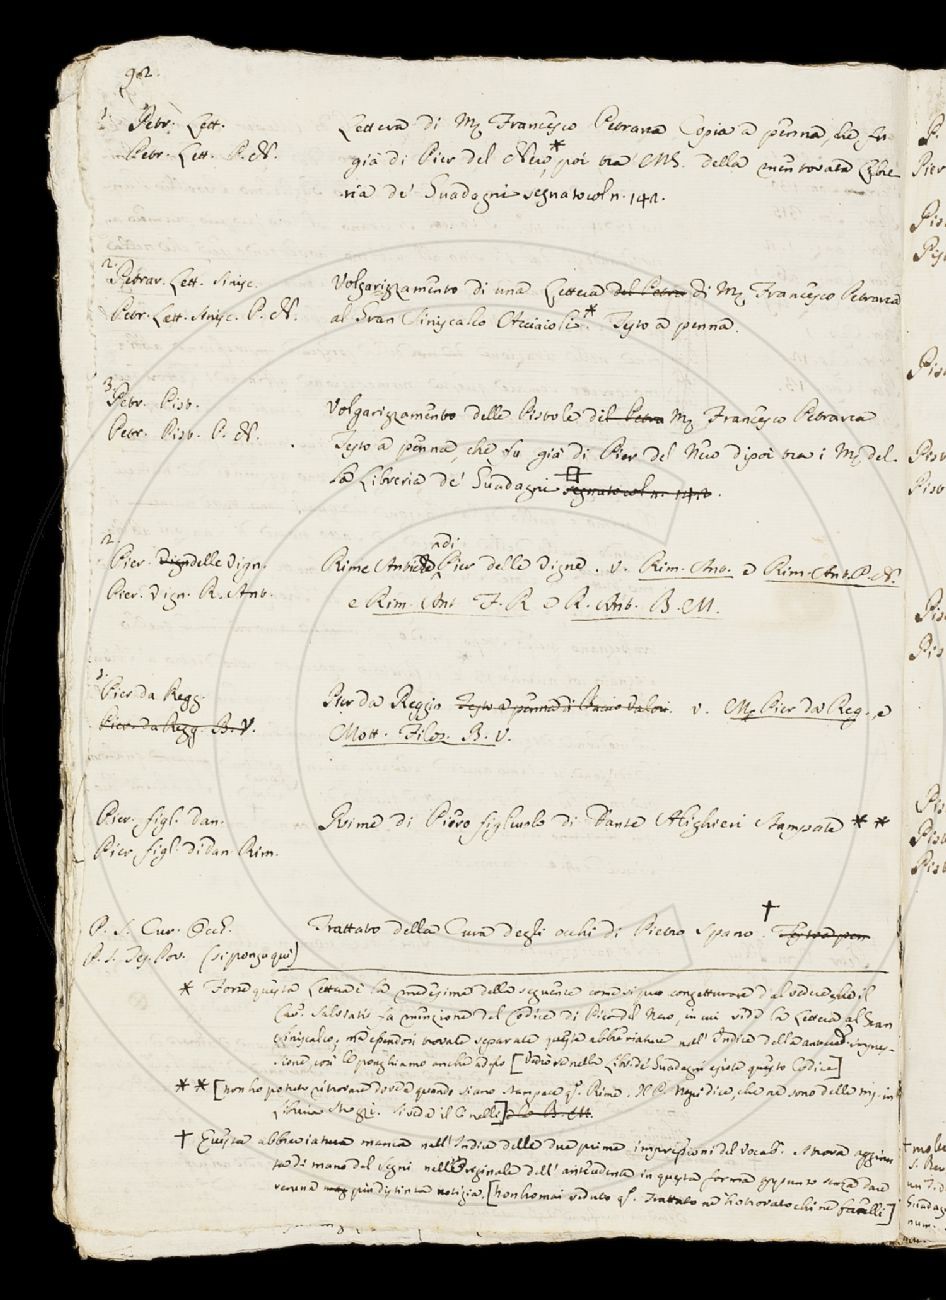 92.
1. Petr. Lett.
Petr. Lett. P. N.
Lettera di M. Francesco Petrarca Copia a penna, che fu
già di Pier del Nero*, poi tra MS. della mentovata Libre
ria de' Guadagni segnato col n. 142.
2. Petrar. Lett. Sinisc.
Petr. Lett. Sinisc. P. N.
Volgarizzamento di una Lettera del Petra di M. Francesco Petrarca
al Gran Siniscalco Acciaioli*. Testo a penna.
3. Petr. Pist.
Petr. Pist. P. N.
Volgarizzamento delle Pistole del Petra M. Francesco Petrarca
Testo a penna, che fu già di Pier del Nero dipoi tra i M. del
la Libreria de' Guadagni segnato col n. 142.
2. Pier. Vign delle Vign.
Pier. Vign. R. Ant.
Rime Antiche di Pier delle Vigne. v. Rim. Ant. e Rim. Ant. P. N.
e Rim. Ant. F. R. e R. Ant. B. M.
1. Pier da Regg.
Pier. da Regg. B. V.
Pier da Reggio Testo a penna di Baccio Valori. v. M. Pier da Reg., e
Mott. Filos. B. V.
Pier. figl. Dan.
Pier figl. di Dan. Rim.
Rime di Piero figliuolo di Dante Alighieri Stampate **
P. S. Cur. Occh.
P. S. Tes. Pov. (si ponga qui)
Trattato della Cura degli occhi di Pietro Spano. † Testo a pen
* Forse questa Lettera è la medesima della seguente come si può congetturare dal vedere che il
Cav. Salviati fa menzione del Codice di Pier del Nero, in cui vide la Lettera al Gran
Siniscalco, ma essendosi trovate separate queste abbreviature nell' Indice dell'antecede. impres-
sione, così le ponghiamo anche adesso [Vedere se nella Lib. de' Guadagni esiste questo Codice]
** [non ho potuto ritrovare dove e quando siano stampate q.e Rime. Il dice, che ne sono delle ms. in
Libreria si vede il Crinelli] e la B. M.
† Questa abbreviatura manca nell' Indice delle due prime impressioni del Vocab. si trova aggiun
ta di mano del Segni nell'originale dell' antecedente in questa forma appunto senza dare
verune mag più distinta notizia. [non ho mai veduto q.o Trattato nè ho trovato chi ne favelli]